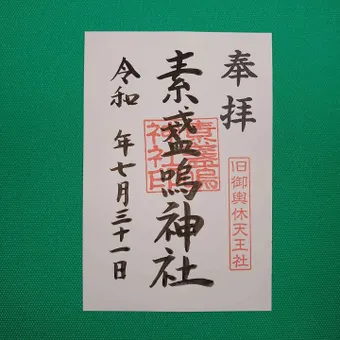 奉拝
旧御輿休天王社
素盞嗚神社
素盞嗚
神社印
令和 年七月三十一日